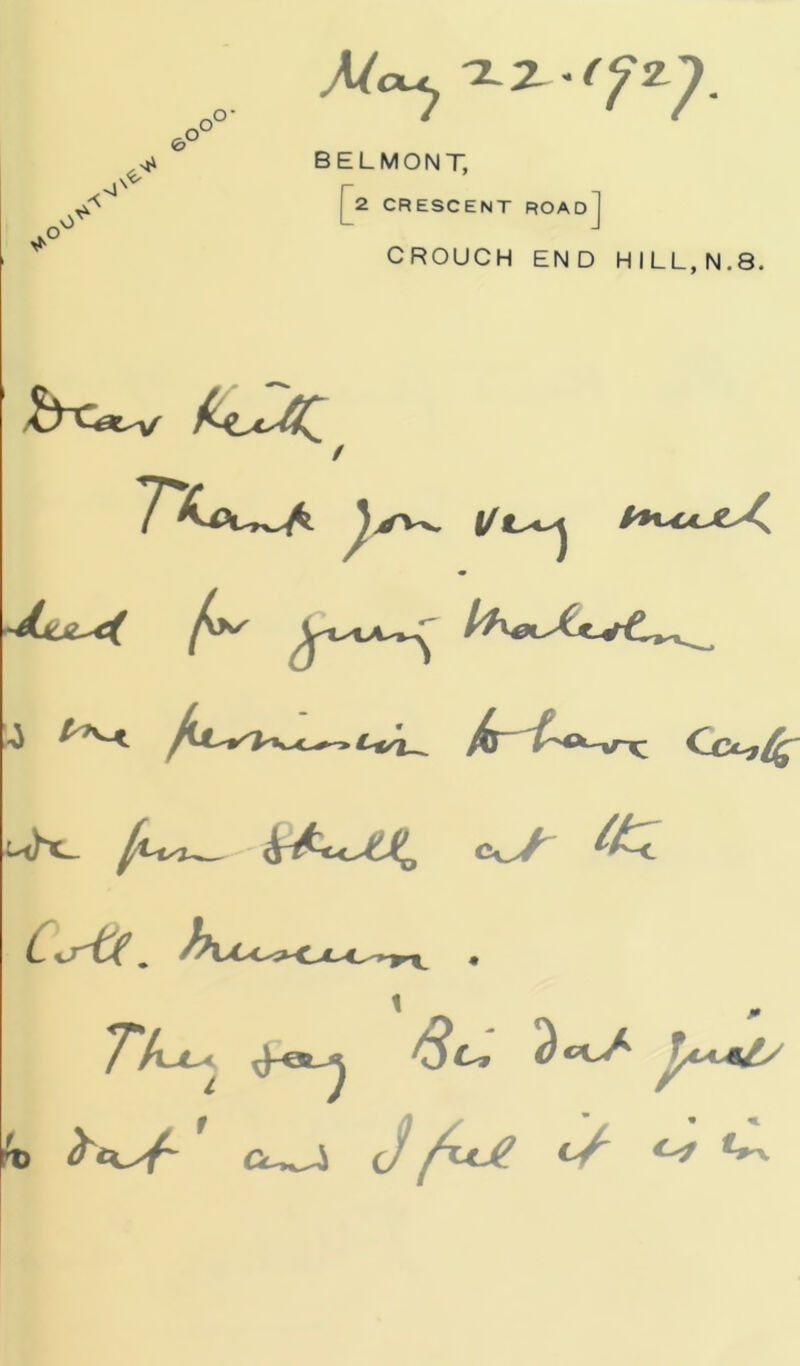 May 22. 1927.
MOUNTVIEW 6000.
BELMONT,
[2 CRESCENT ROAD]
CROUCH END HILL, N.8.
Dear Keith,
Thank you very much
deed for giving Malcolm
& me permission to have casts
made from skulls at the
Coll. Museum.
They say 'Bis dat qui
to dat' and I feel it is in